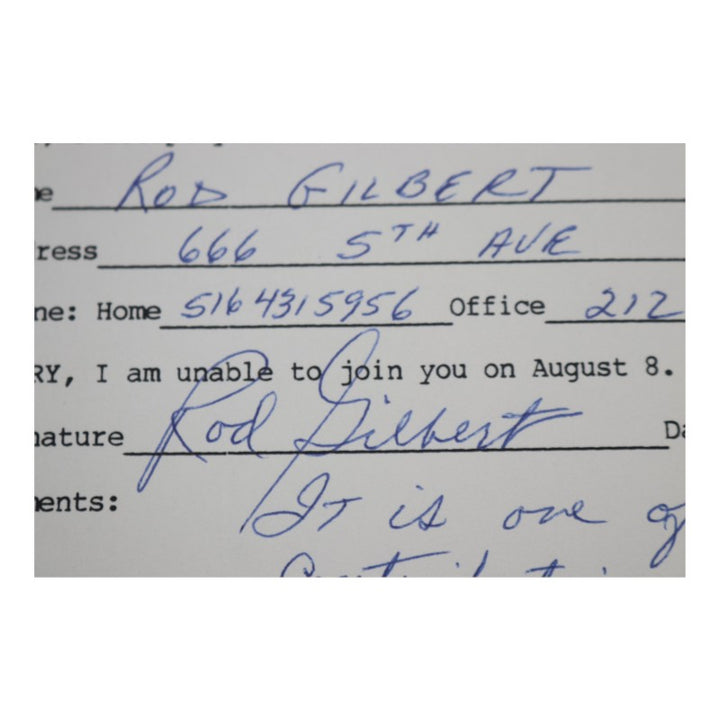 ROD GILBERT
ress 666 5TH AVE
ne: Home 516 431 5956 Office 212
RY, I am unable to join you on August 8.
nature Rod Gilbert Da
ents:
It is one of